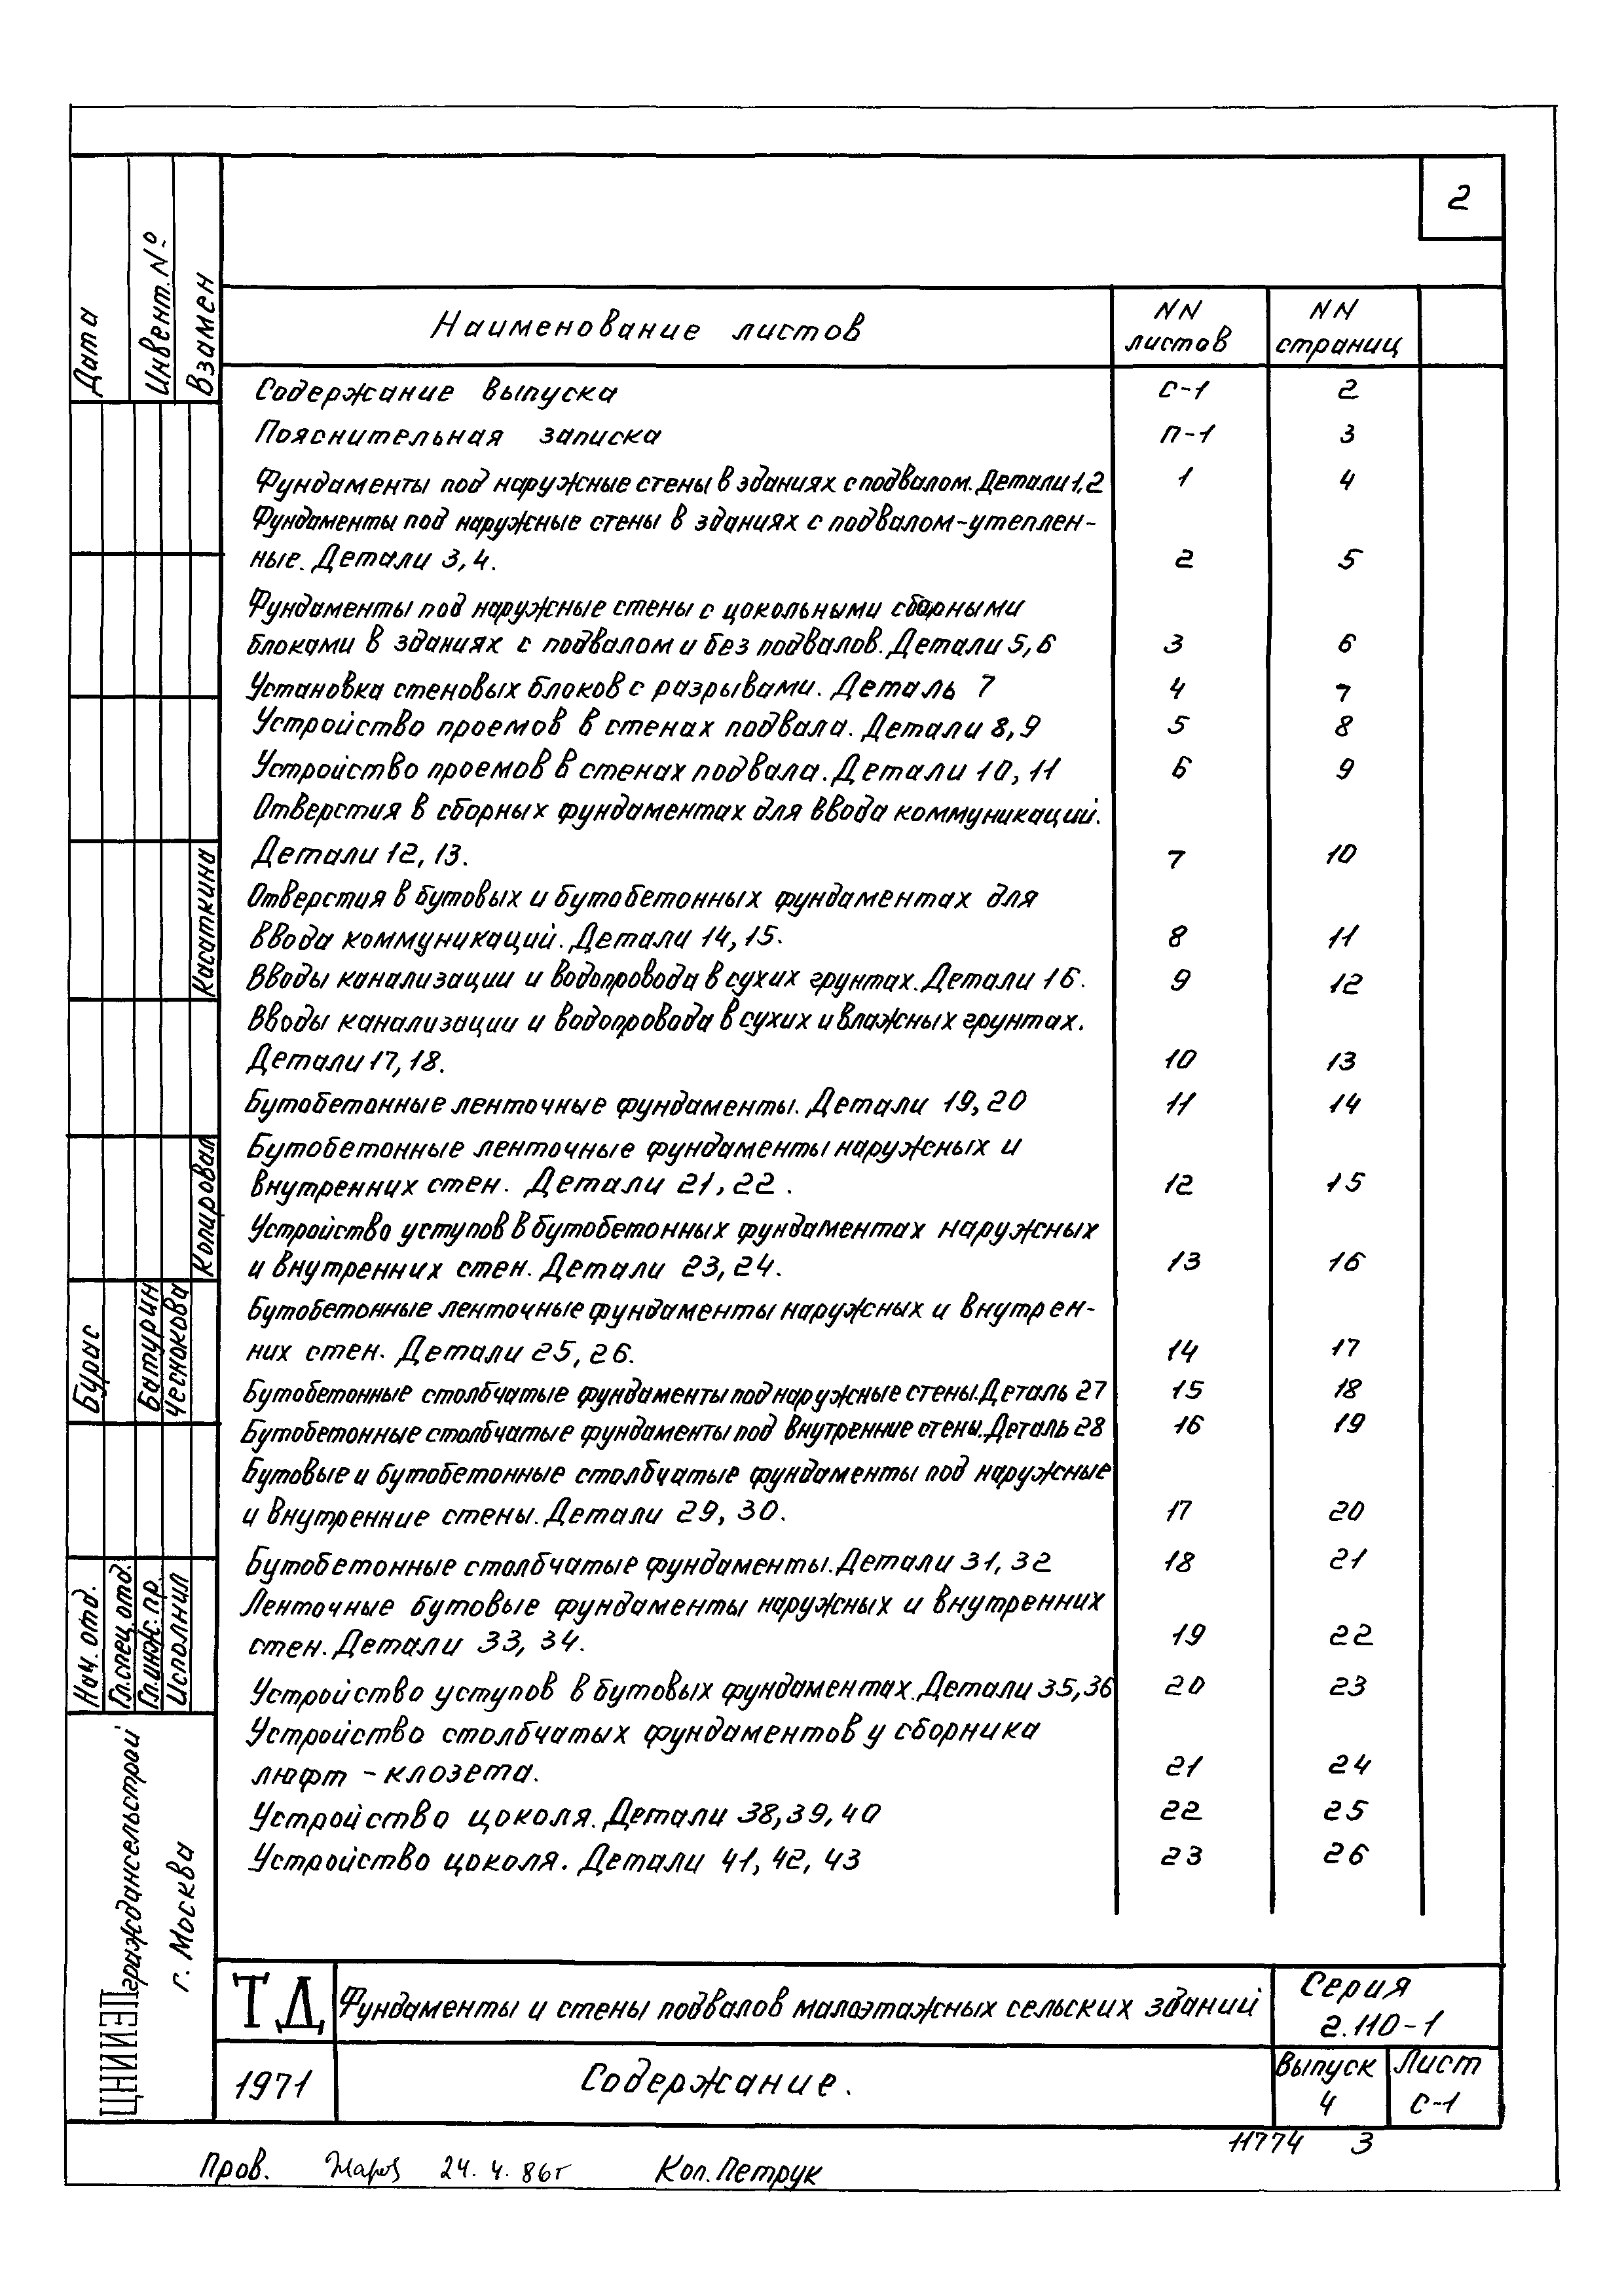 2
Наименование листов
NN листов
NN страниц
Содержание выпуска С-1 2
Пояснительная записка П-1 3
Фундаменты под наружные стены в зданиях с подвалом. Детали 1,2 1 4
Фундаменты под наружные стены в зданиях с подвалом-утеплен-
ные. Детали 3,4. 2 5
Фундаменты под наружные стены с цокольными сборными
блоками в зданиях с подвалом и без подвалов. Детали 5,6 3 6
Установка стеновых блоков с разрывами. Деталь 7 4 7
Устройство проемов в стенах подвала. Детали 8,9 5 8
Устройство проемов в стенах подвала. Детали 10,11 6 9
Отверстия в сборных фундаментах для ввода коммуникаций.
Детали 12,13. 7 10
Отверстия в бутовых и бутобетонных фундаментах для
ввода коммуникаций. Детали 14,15. 8 11
Вводы канализации и водопровода в сухих грунтах. Детали 16. 9 12
Вводы канализации и водопровода в сухих и влажных грунтах.
Детали 17,18. 10 13
Бутобетонные ленточные фундаменты. Детали 19,20 11 14
Бутобетонные ленточные фундаменты наружных и
внутренних стен. Детали 21,22. 12 15
Устройство уступов в бутобетонных фундаментах наружных
и внутренних стен. Детали 23,24. 13 16
Бутобетонные ленточные фундаменты наружных и внутрен-
них стен. Детали 25,26. 14 17
Бутобетонные столбчатые фундаменты под наружные стены. Деталь 27 15 18
Бутобетонные столбчатые фундаменты под внутренние стены. Деталь 28 16 19
Бутовые и бутобетонные столбчатые фундаменты под наружные
и внутренние стены. Детали 29, 30. 17 20
Бутобетонные столбчатые фундаменты. Детали 31, 32 18 21
Ленточные бутовые фундаменты наружных и внутренних
стен. Детали 33, 34. 19 22
Устройство уступов в бутовых фундаментах. Детали 35,36 20 23
Устройство столбчатых фундаментов у сборника
люфт-клозета. 21 24
Устройство цоколя. Детали 38,39,40 22 25
Устройство цоколя. Детали 41, 42, 43 23 26
Дата
Инвент. №
Взамен
Касаткина
Копировал
Бурис
Батурин
Чеснокова
Нач. отд.
Гл. спец. отд.
Гл. инж. пр.
Исполнил
ЦНИИЕПграждансельстрой
г. Москва
ТД
Фундаменты и стены подвалов малоэтажных сельских зданий
Серия
2.110-1
1971
Содержание.
Выпуск
4
Лист
С-1
11774 3
Пров. 24. 4. 86г Коп. Петрук